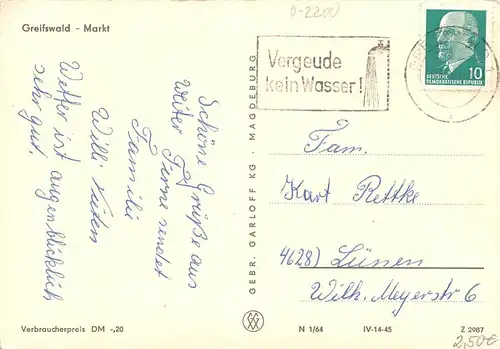 Greifswald - Markt
0-2200
Vergeude
kein Wasser!
10
DEUTSCHE
DEMOKRATISCHE REPUBLIK
Schöne Grüße aus
weiter Ferne sendet
Familie
Willi
Wetter ist augenblicklich
sehr gut.
GEBR. GARLOFF KG · MAGDEBURG
Fam.
Kart Rettke
4628) Lünen
Wilh. Meyerstr 6
Verbraucherpreis DM -,20
N 1/64
IV-14-45
Z 2987
2,50€